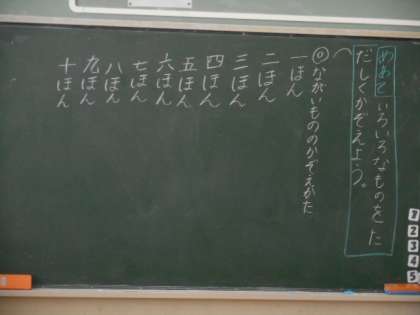 めあて いろいろなものをた
だしくかぞえよう。
◎ながいもののかぞえかた
一ほん
二ほん
三ほん
四ほん
五ほん
六ほん
七ほん
八ほん
九ほん
十ほん
1
2
3
4
5